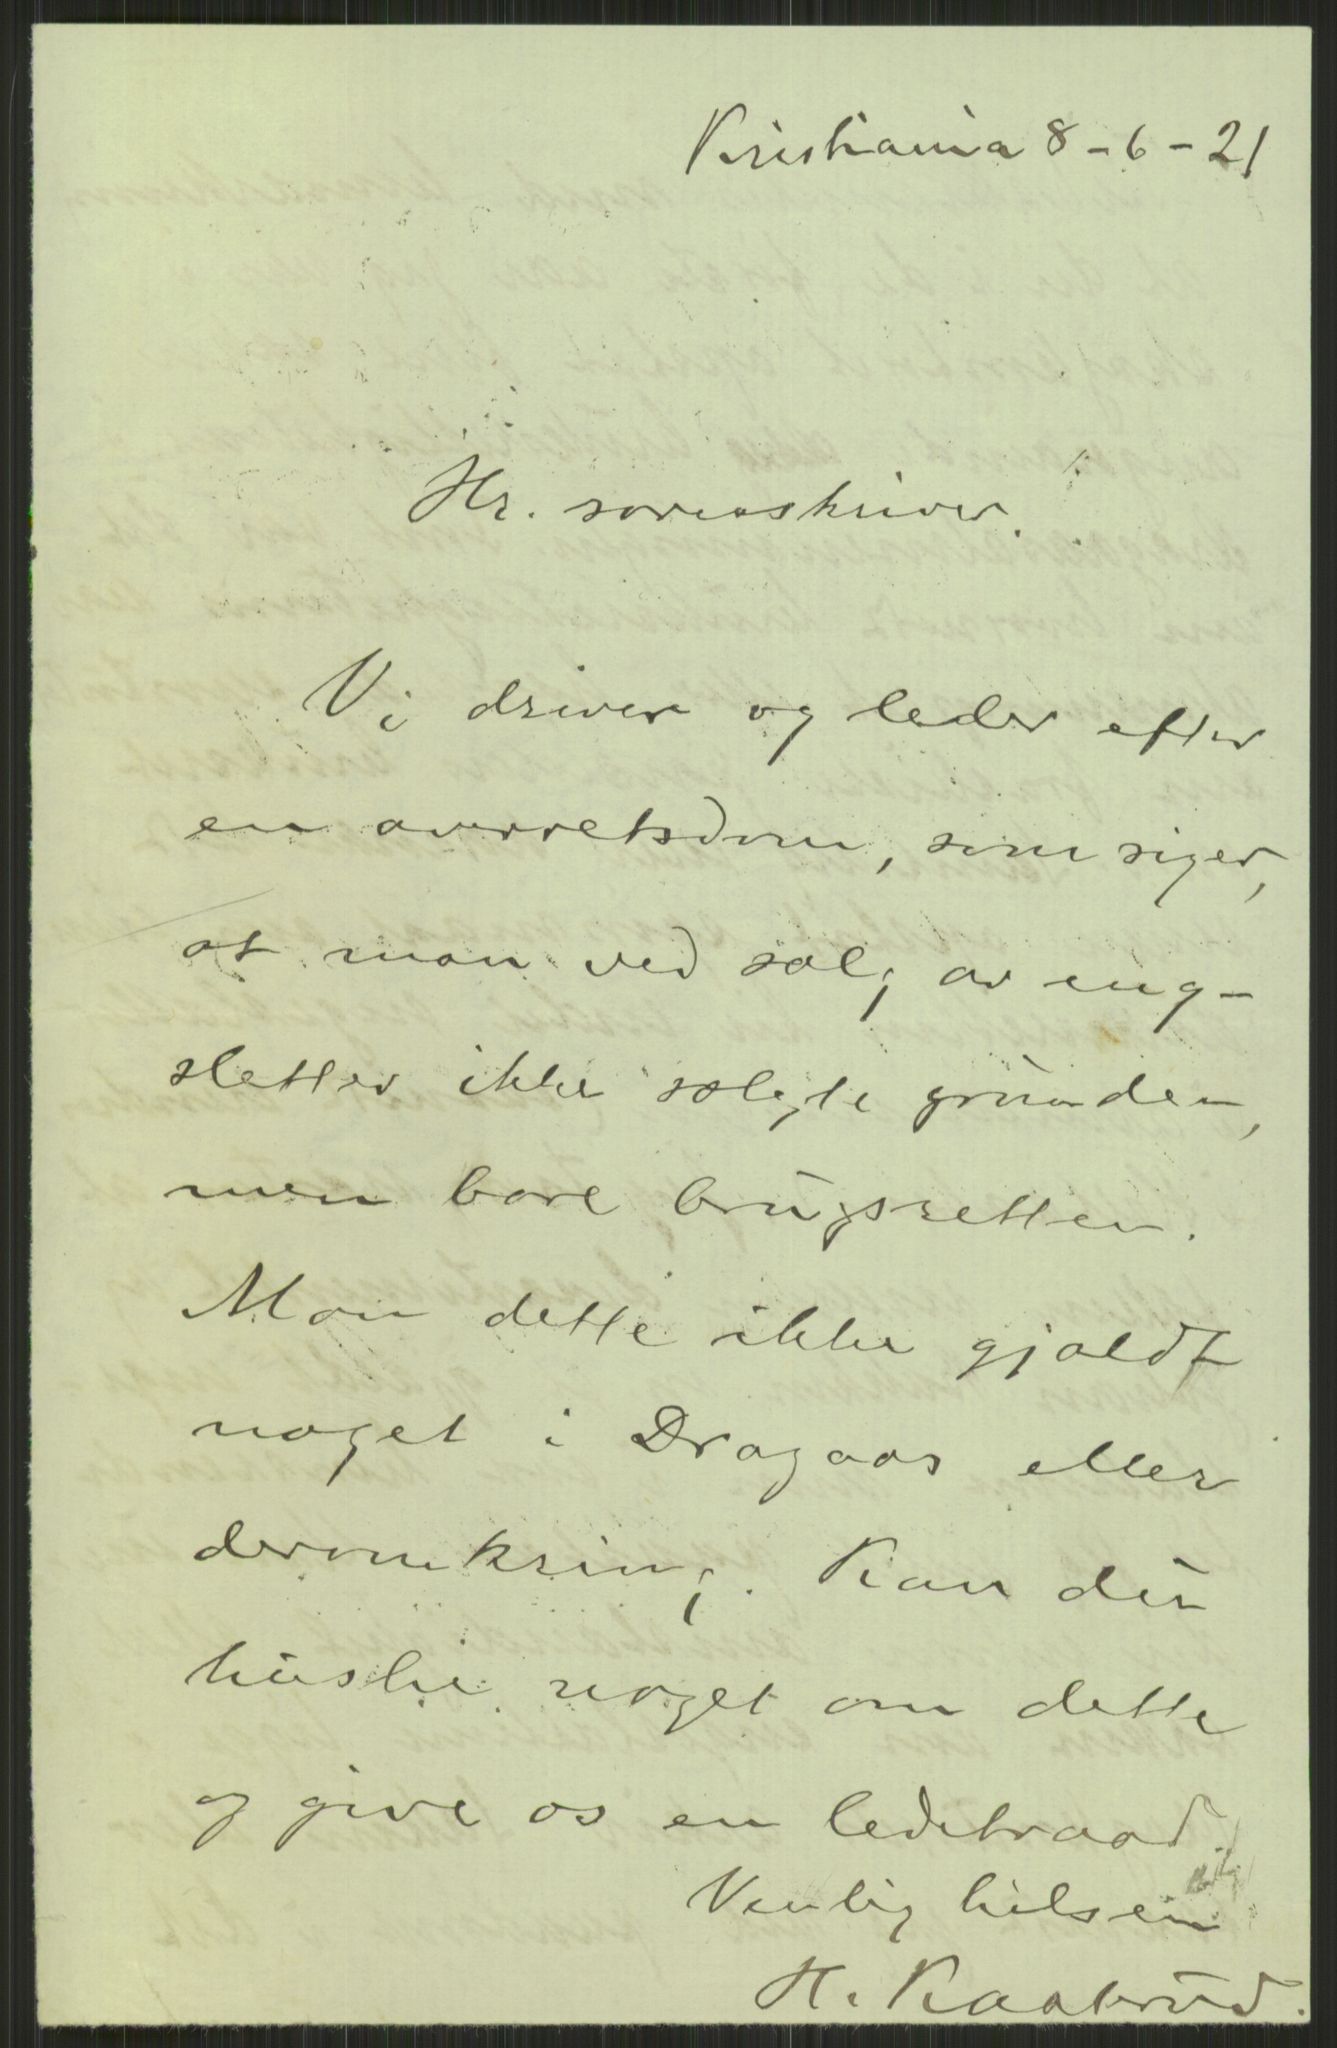 Kristiania 8-6-21
Hr. sorenskriver.
Vi driver og leder efter
en overretsdom, som siger,
at man ved salg av eng-
sletter ikke solgte grunden,
men bare brugsretten.
Mon dette ikke gjaldt
noget i Dragaas eller
deromkring. Kan du
huske noget om dette
og give os en ledetraad.
Venlig hilsen
H.